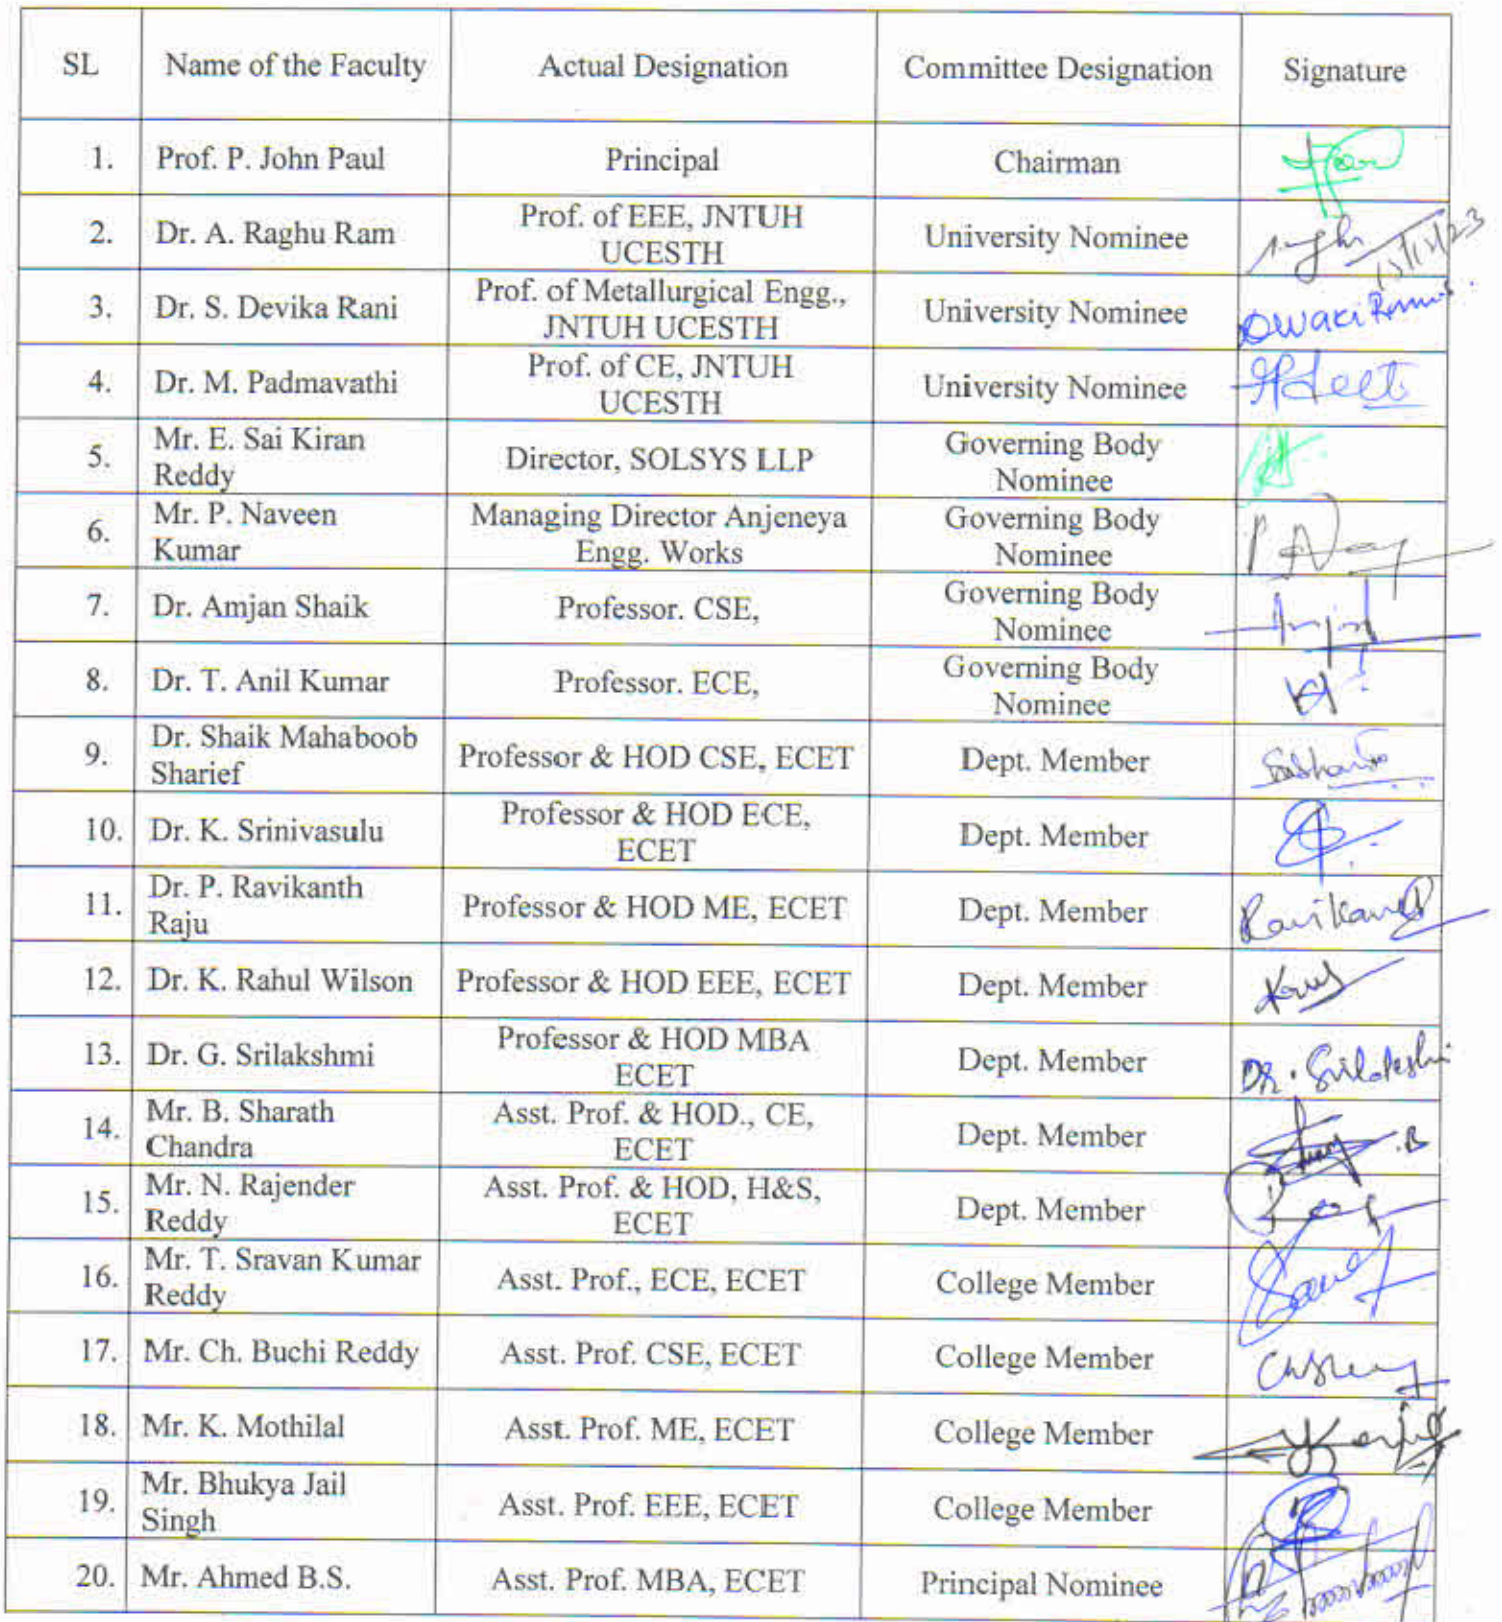 SL Name of the Faculty Actual Designation Committee Designation Signature
1. Prof. P. John Paul Principal Chairman
2. Dr. A. Raghu Ram Prof. of EEE, JNTUH University Nominee
UCESTH
3. Dr. S. Devika Rani Prof. of Metallurgical Engg., University Nominee
JNTUH UCESTH
4. Dr. M. Padmavathi Prof. of CE, JNTUH University Nominee
UCESTH
5. Mr. E. Sai Kiran Director, SOLSYS LLP Governing Body
Reddy Nominee
6. Mr. P. Naveen Managing Director Anjeneya Governing Body
Kumar Engg. Works Nominee
7. Dr. Amjan Shaik Professor. CSE, Governing Body
Nominee
8. Dr. T. Anil Kumar Professor. ECE, Governing Body
Nominee
9. Dr. Shaik Mahaboob Professor & HOD CSE, ECET Dept. Member
Sharief
10. Dr. K. Srinivasulu Professor & HOD ECE, Dept. Member
ECET
11. Dr. P. Ravikanth Professor & HOD ME, ECET Dept. Member
Raju
12. Dr. K. Rahul Wilson Professor & HOD EEE, ECET Dept. Member
13. Dr. G. Srilakshmi Professor & HOD MBA Dept. Member
ECET
14. Mr. B. Sharath Asst. Prof. & HOD., CE, Dept. Member
Chandra ECET
15. Mr. N. Rajender Asst. Prof. & HOD, H&S, Dept. Member
Reddy ECET
16. Mr. T. Sravan Kumar Asst. Prof., ECE, ECET College Member
Reddy
17. Mr. Ch. Buchi Reddy Asst. Prof. CSE, ECET College Member
18. Mr. K. Mothilal Asst. Prof. ME, ECET College Member
19. Mr. Bhukya Jail Asst. Prof. EEE, ECET College Member
Singh
20. Mr. Ahmed B.S. Asst. Prof. MBA, ECET Principal Nominee